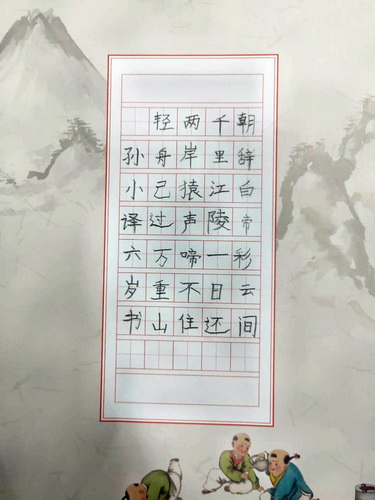 朝辞白帝彩云间
千里江陵一日还
两岸猿声啼不住
轻舟已过万重山
孙小译六岁书